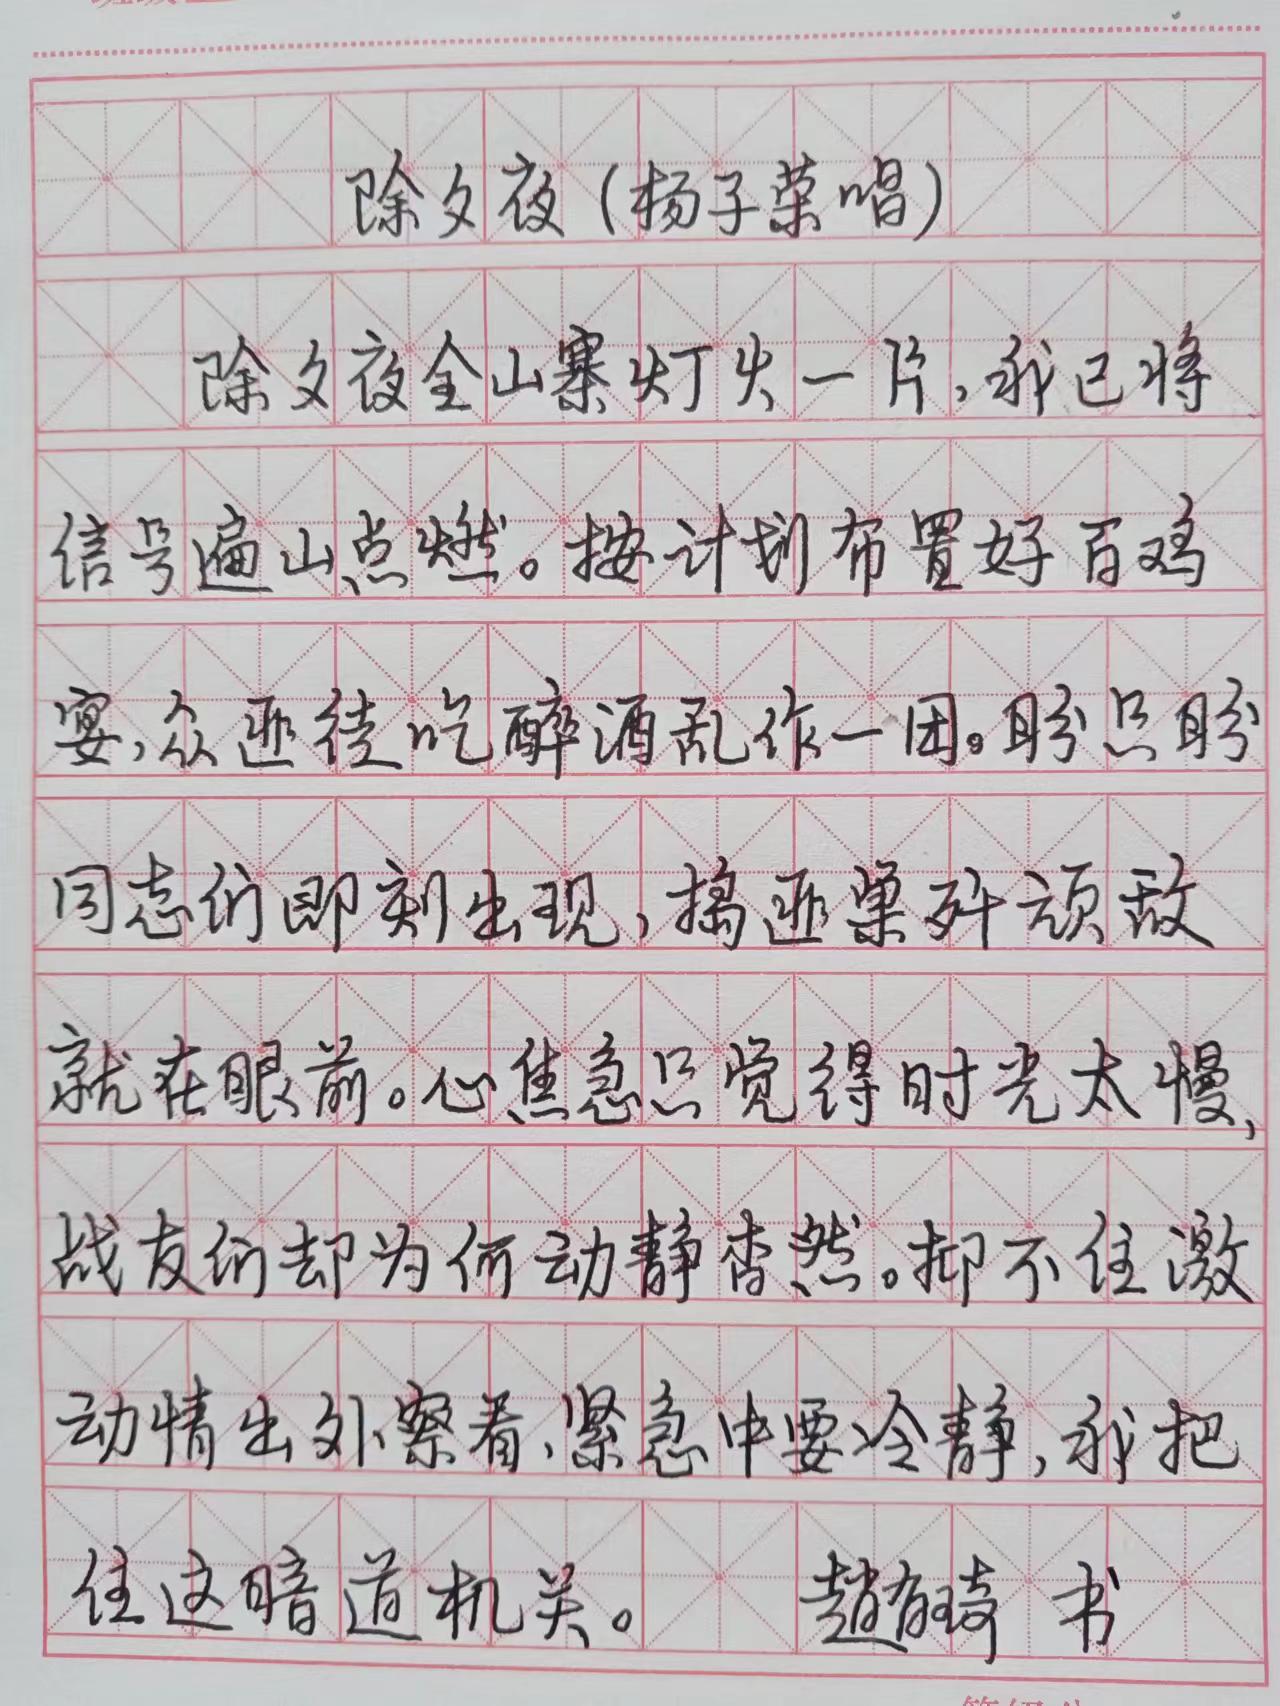 除夕夜（杨子荣唱）
除夕夜全山寨灯火一片，我已将
信号遍山点燃。按计划布置好百鸡
宴，众匪徒吃醉酒乱作一团。盼只盼
同志们即刻出现，捣匪巢歼顽敌
就在眼前。心焦急只觉得时光太慢，
战友们却为何动静杳然。抑不住激
动情出外察看，紧急中要冷静，我把
住这暗道机关。 赵有琦 书